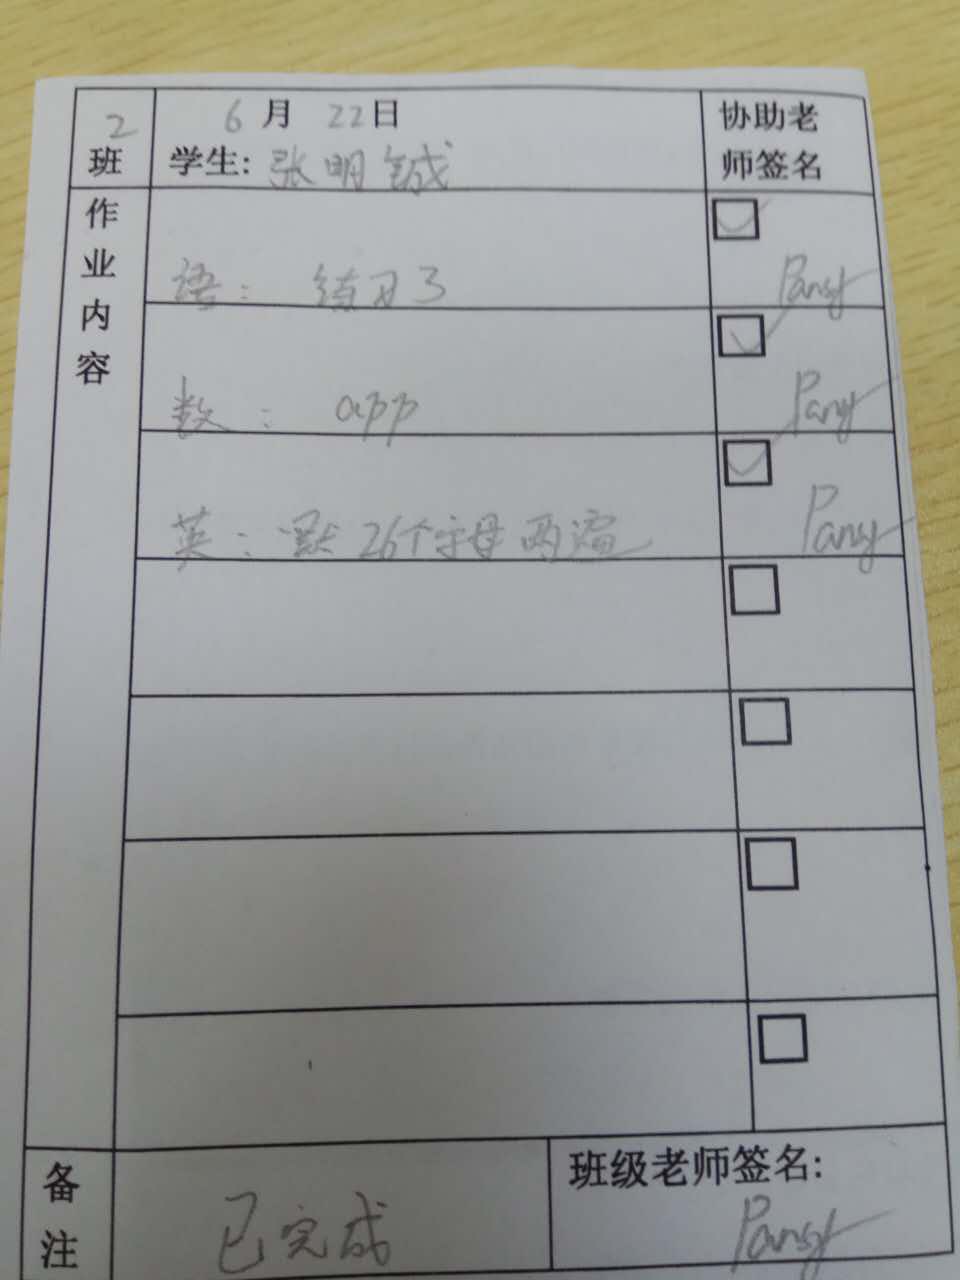 2班
6月22日
学生: 张明铖
协助老师签名
作业内容
语: 练习3
Pansy
数: app
Pansy
英: 默26个字母两遍
Pansy
备注
已完成
班级老师签名:
Pansy